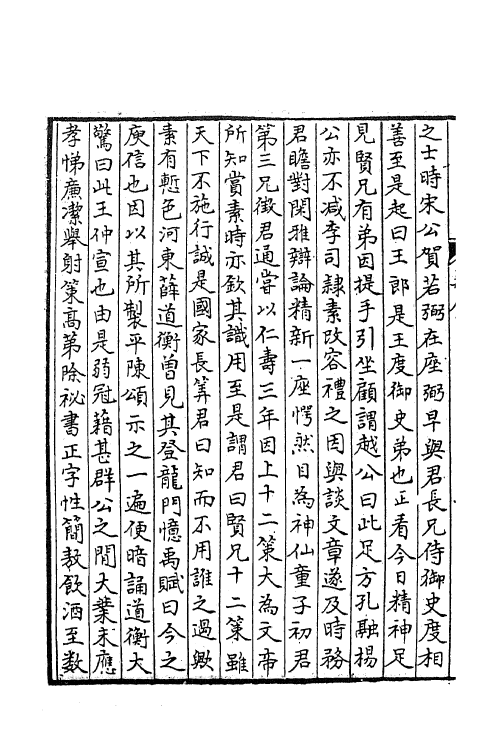 之士時宋公賀若弼在座弼早與君長兄侍御史度相
善至是起曰王郎是王度御史弟也正看今日精神足
見賢兄有弟因提手引坐顧謂越公曰此足方孔融楊
公亦不減李司隸素改容禮之因與談文章遂及時務
君瞻對閑雅辯論精新一座愕然目為神仙童子初君
第三兄徵君通嘗以仁壽三年因上十二策大為文帝
所知賞素時亦欽其識用至是謂君曰賢兄十二策雖
天下不施行誠是國家長筭君曰知而不用誰之過歟
素有慙色河東薛道衡曾見其登龍門憶禹賦曰今之
庾信也因以其所製平陳頌示之一遍便暗誦道衡大
驚曰此王仲宣也由是弱冠藉甚群公之閒大業末應
孝悌廉潔舉射策高第除祕書正字性簡敖飲酒至數